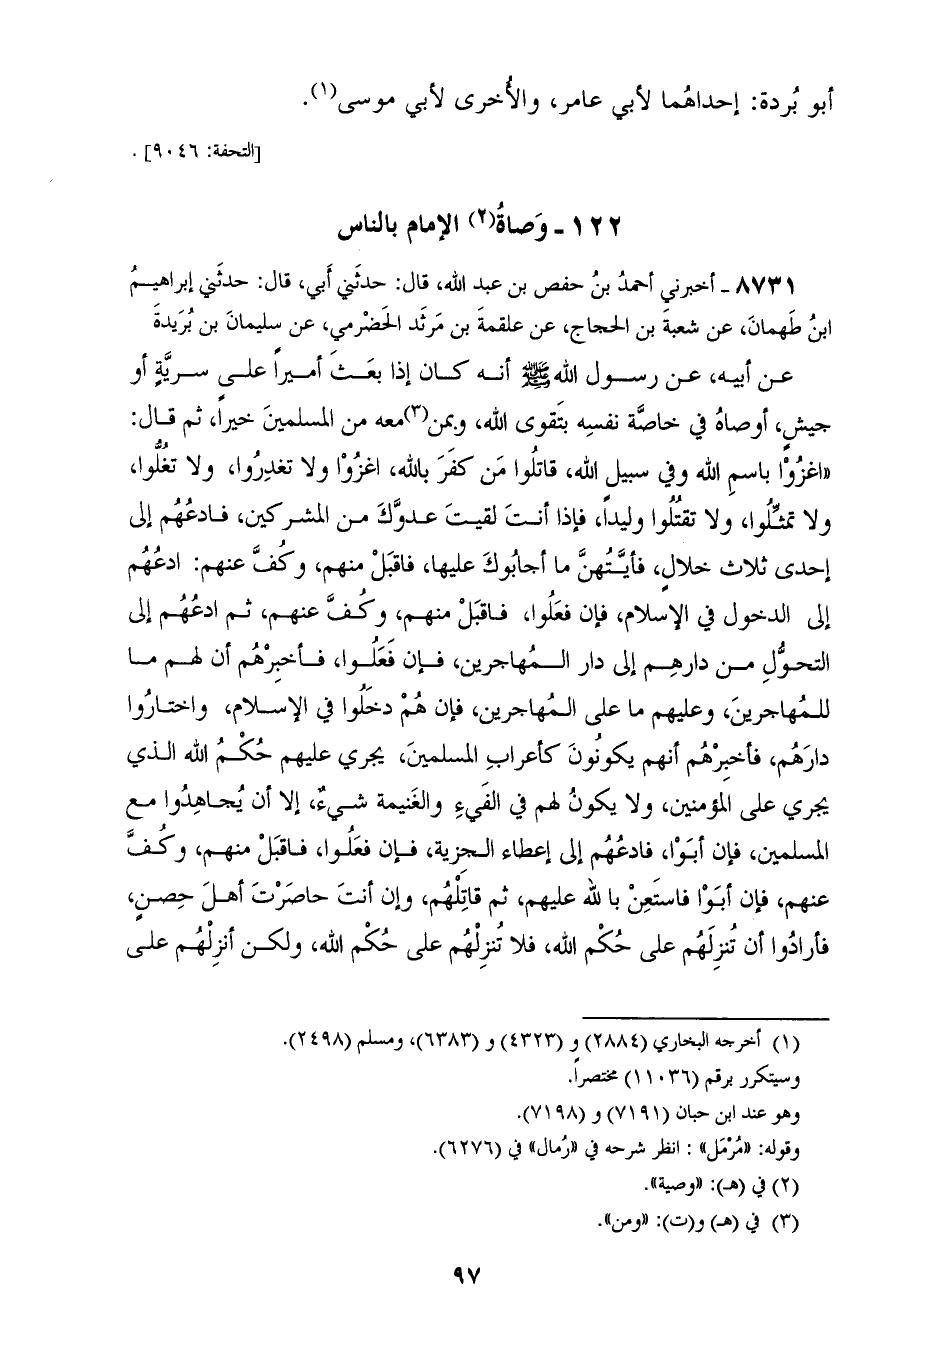 أبو بُردة: إحداهُما لأبي عامر، والأُخرى لأبي موسى(١).
[التحفة: ٩٠٤٦] .
١٢٢ - وَصاةُ(٢) الإمام بالناس
٨٧٣١ - أخبرني أحمدُ بنُ حفص بن عبد الله، قال: حدثَني أبي، قال: حدثَني إبراهيمُ
ابنُ طَهمانَ، عن شعبةَ بن الحجاج، عن علقمةَ بن مَرثَد الحَضْرمي، عن سليمانَ بن بُرَيدةَ
عن أبيه، عن رسول الله ﷺ أنه كان إذا بعَثَ أميراً على سريَّةٍ أو
جيشٍ، أوصاهُ في خاصَّة نفسِه بتَقوى الله، وبمن(٣) معه من المسلمينَ خيراً، ثم قال:
«اغزُوْا باسمِ الله وفي سبيل الله، قاتلُوا مَن كفَرَ بالله، اغزُوْا ولا تغدِرُوا، ولا تغُلُّوا،
ولا تمثِّلُوا، ولا تقتُلُوا وليداً، فإذا أنتَ لقيتَ عدوَّكَ من المشركين، فادعُهُم إلى
إحدى ثلاث خلالٍ، فأيَّتُهنَّ ما أجابُوكَ عليها، فاقبَلْ منهم، وكُفَّ عنهم: ادعُهُم
إلى الدخول في الإسلام، فإن فعَلُوا، فاقبَلْ منهم، وكُفَّ عنهم، ثم ادعُهُم إلى
التحوُّلِ من دارهِم إلى دار المُهاجرين، فإن فَعَلُوا، فأخبِرْهُم أن لهم ما
للمُهاجرينَ، وعليهم ما على المُهاجرين، فإن هُمْ دخَلُوا في الإسلام، واختارُوا
دارَهُم، فأخبِرْهُم أنهم يكونُونَ كأعرابِ المسلمينَ، يجري عليهم حُكْمُ الله الذي
يجري على المؤمنين، ولا يكونُ لهم في الفَيءِ والغَنيمة شيءٌ، إلا أن يُجاهِدُوا مع
المسلمين، فإن أبَوْا، فادعُهُم إلى إعطاء الجِزية، فإن فعَلُوا، فاقبَلْ منهم، وكُفَّ
عنهم، فإن أبَوْا فاستَعِنْ با لله عليهم، ثم قاتِلْهُم، وإن أنتَ حاصَرْتَ أهلَ حِصنٍ،
فأرادُوا أن تُنزِلَهُم على حُكْم الله، فلا تُنزِلْهُم على حُكْم الله، ولكن أنزِلْهُم على
(١) أخرجه البخاري (٢٨٨٤) و (٤٣٢٣) و (٦٣٨٣)، ومسلم (٢٤٩٨).
وسيتكرر برقم (١١٠٣٦) مختصراً.
وهو عند ابن حبان (٧١٩١) و (٧١٩٨).
وقوله: «مُرْمَل» : انظر شرحه في «رُمال» في (٦٢٧٦).
(٢) في (هـ): «وصية».
(٣) في (هـ) و(ت): «ومن».
٩٧